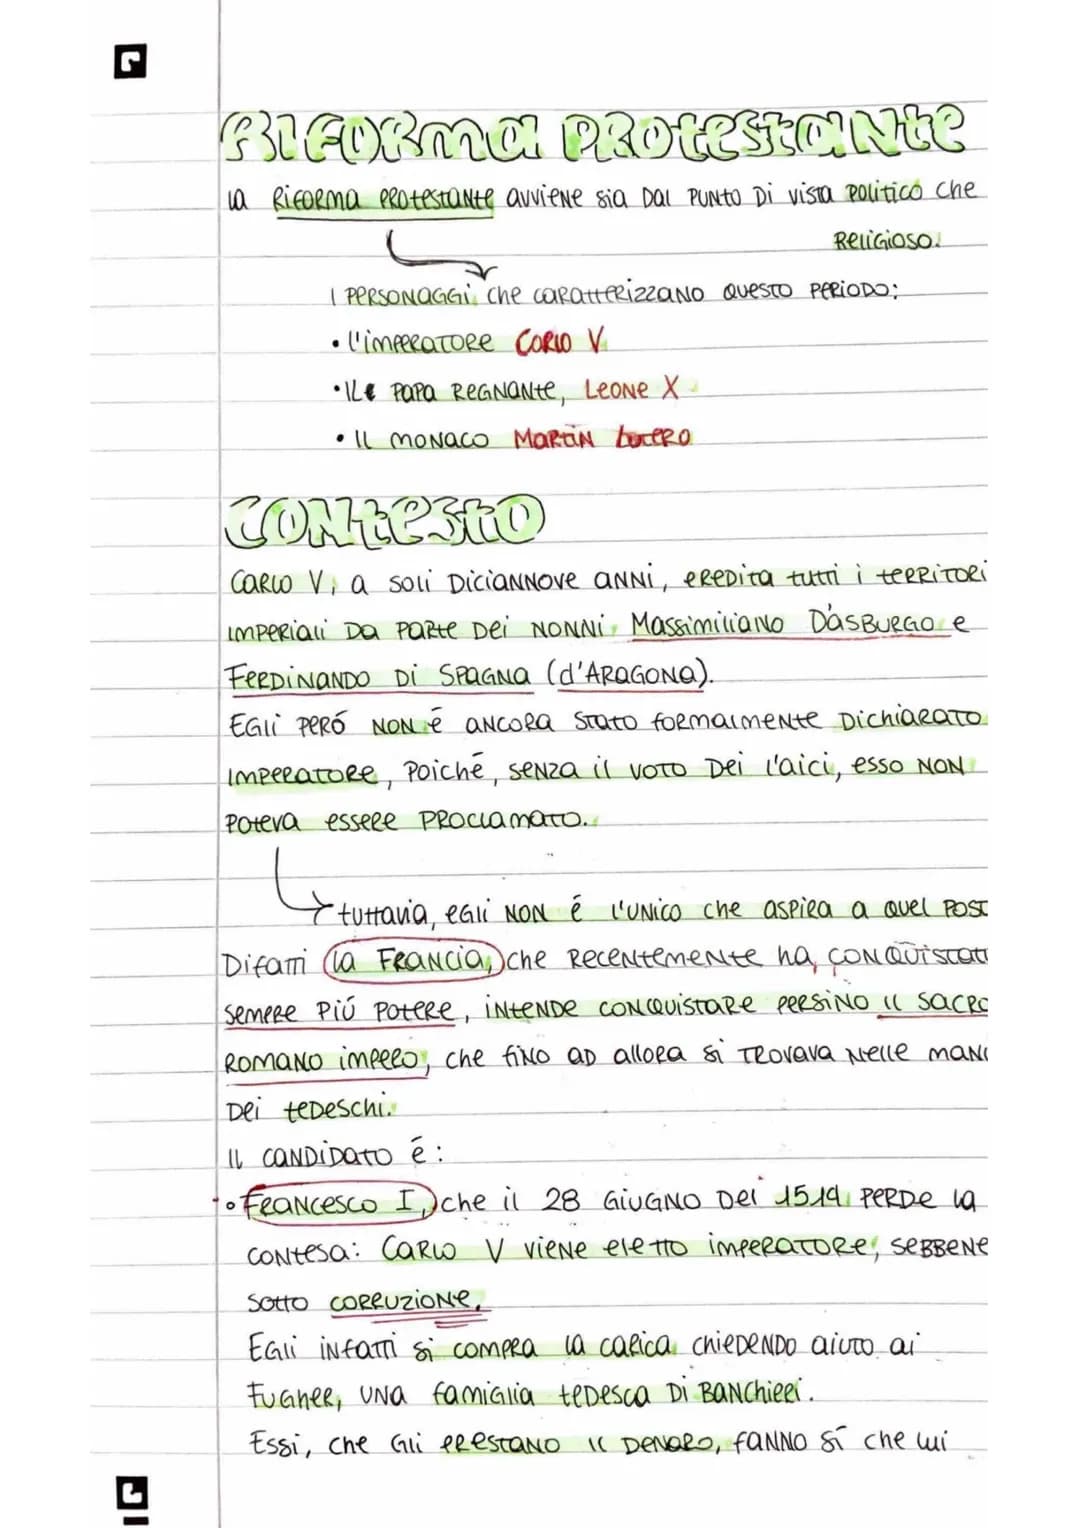 RIFORMA PROTESTANTE
la RIFORMA PROTESTANTE avviene sia dal punto di vista politico che
religioso.
I personaggi che caratterizzano questo periodo:
• l'imperatore CARLO V
• Il papa regnante, LEONE X
• Il monaco MARTIN LUTERO
CONTESTO
Carlo V, a soli diciannove anni, eredita tutti i territori
imperiali da parte dei nonni, Massimiliano D'asburgo e
Ferdinando di Spagna (d'Aragona).
Egli peró non é ancora stato formalmente dichiarato
imperatore, poiché, senza il voto dei l'aici, esso non
poteva essere proclamato.
tuttavia, egli non é l'unico che aspira a quel post
Difatti la Francia, che recentemente ha conquistat
sempre piú potere, intende conquistare persino il sacro
romano impero, che fino ad allora si trovava nelle mani
dei tedeschi.
Il candidato é:
• Francesco I, che il 28 giugno del 1519 perde la
contesa: Carlo V viene eletto imperatore, sebbene
sotto corruzione.
Egli infatti si compra la carica chiedendo aiuto ai
Fugher, una famiglia tedesca di banchieri.
Essi, che gli prestano il denaro, fanno sí che lui